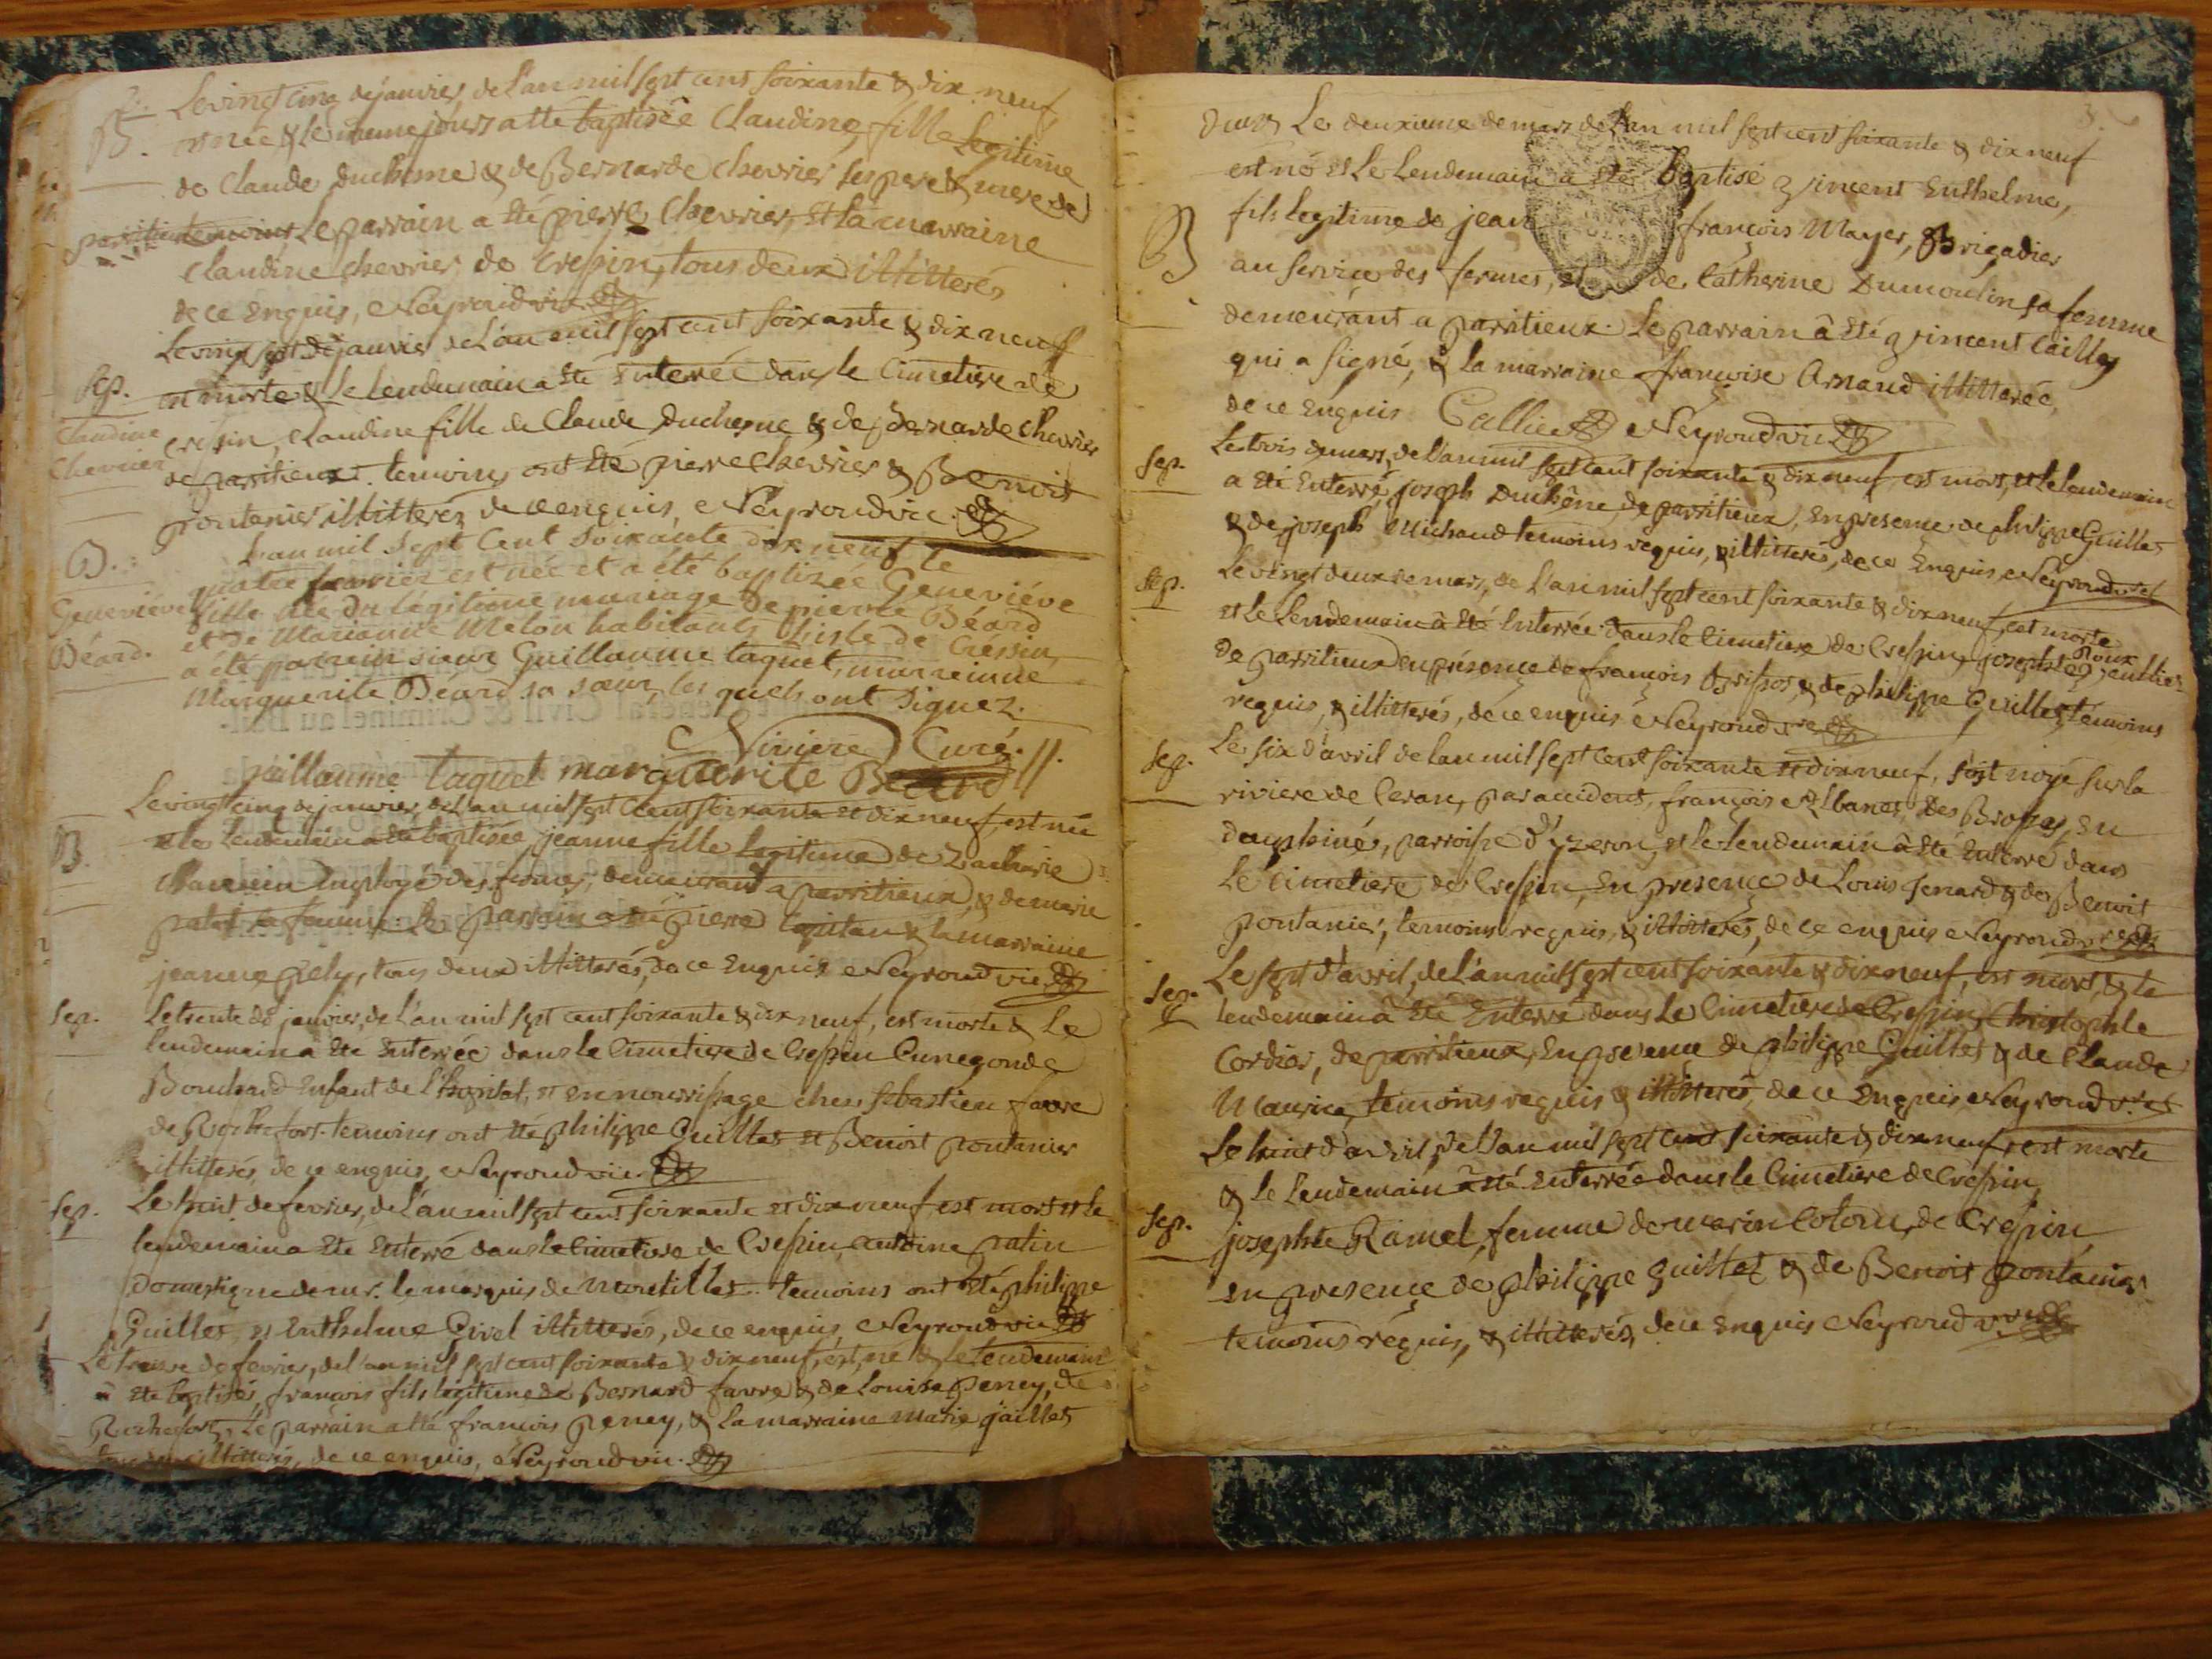 2.
Le vingt cinq de janvier, de l'an mil sept cent soixante & dix neuf
B. née & le meme jours a été baptisée Claudine, fille legitime
de Claude Duchesne & de Bernarde Chevrier ses pere & mere de
parritieu temoins Le parrain a été pierre Chevrier, et la marraine
Claudine chevrier de Crespin, tous deux illitterés
de ce enquis, Neyroud vic.
Le vingt sept de janvier de l'an mil sept cent soixante & dix neuf
Sep. est morte & le lendemain a été enterrée dans le Cimetiere de
Claudine
Chevrier
Cresin, Claudine fille de Claude Duchesne & de Bernarde Chevrier
de parritieux. temoins ont été pierre Chevrier & Benoit
pontanier illitterés de ce enquis, Neyroud vic.
B.
Geneviéve
Béard.
L'an mil sept cent soixante dix neuf le
quatre fevrier est née et a été baptizée Geneviéve
fille née du légitime mariage de pierre Béard
et de Marianne Melon habitants Lisle de Créssin,
a été parrein sieur Guillaume taquet, marreinne
Marguerite Béard sa sœur, les quels ont signez.
Niviere Curé.
guillaume taquet marguerite Beard
Le vingt cinq de janvier, de l'an mil sept cent soixante et dix neuf, est née
B. et le lendemain a été baptisée, jeanne fille legitime de Zacharie
employé des fermes, demeurant a parritieux, & de marie
palat sa femme. Le parrain a été pierre Capitan & la marraine
jeanne pely, tous deux illitterés, de ce enquis Neyroud vic.
Sep. Le trente de janvier, de l'an mil sept cent soixante & dix neuf, est morte & le
lendemain a été enterrée dans le Cimetiere de Crespin Cunegonde
Bouchard enfant de l'hopital, et en nourrissage chez sebastien favre
de Rochefort. temoins ont été philippe Guillet et Benoit pontanier
illitterés, de ce enquis, Neyroud vic.
Sep. Le huit de fevrier, de l'an mil sept cent soixante et dix neuf, est mort et le
lendemain a été enterré dans le Cimetiere de Crespin antoine patin
domestique de mr. le marquis de montillet. temoins ont été philippe
Guillet, et Enthelme Givel illitterés, de ce enquis, Neyroud vic
Le treize de fevrier, de l'an mil sept cent soixante & dix neuf, est né & le lendemain
a été baptisé, françois fils legitime de Bernard favre & de Louise peney, de
Rochefort. Le parrain a été françois peney, & la marraine marie jaillet
illitterés, de ce enquis, Neyroud vic.
3.
Le deuxieme de mars de l'an mil sept cent soixante & dix neuf
est né et le lendemain a été baptisé vincent Enthelme,
B fils legitime de jean françois Mayer, Brigadier
au service des fermes, et de Catherine Dumoulin sa femme
demeurant a parritieux. Le parrain a été vincent Cailles
qui a signé, & la marraine françoise Arnaud illitterée,
de ce enquis Callies Neyroud vic
Sep. Le trois de mars, de l'an mil sept cent soixante & dix neuf, est mort, et le lendemain
a été enterré, joseph Duchêne, de parritieux, en presence de philippe Guillet
& de joseph Michaud temoins requis, & illitterés, de ce enquis, Neyroud vic
Sep. Le vingt deux de mars, de l'an mil sept cent soixante & dix neuf, est morte
et le lendemain a été enterrée dans le Cimetiere de Crespin, josephte
de parritieux en présence de françois & de philippe Guillet, témoins
requis, & illitterés, de ce enquis Neyroud vic
Sep. Le six d'avril de l'an mil sept cent soixante et dix neuf, s'est noyé sur la
riviere de Ceran, par accident, françois des Brosses, en
dauphiné, parroisse d'izeron, et le lendemain a été enterré dans
Le cimetiere de Crespin, en présence de Louis Jenard & de Benoit
pontanier, temoins requis, & illitterés, de ce enquis Neyroud vic
Sep. Le sept d'avril, de l'an mil sept cent soixante & dix neuf, est mort, & le
lendemain a été enterré dans le Cimetiere de Crespin, Christophle
Cordier, de parritieux, en presence de philippe Guillet & de Claude
Maurice, temoins requis & illitterés, de ce enquis Neyroud vic
Le huit d'avril, de l'an mil sept cent soixante & dix neuf, est morte
& le lendemain a été enterrée dans le Cimetiere de Crespin,
Sep. josephte Ramel, femme de marin Colom, de Crépin,
en presence de philippe guillet & de Benoit pontanier
temoins réquis, & illitterés, de ce enquis Neyroud vic